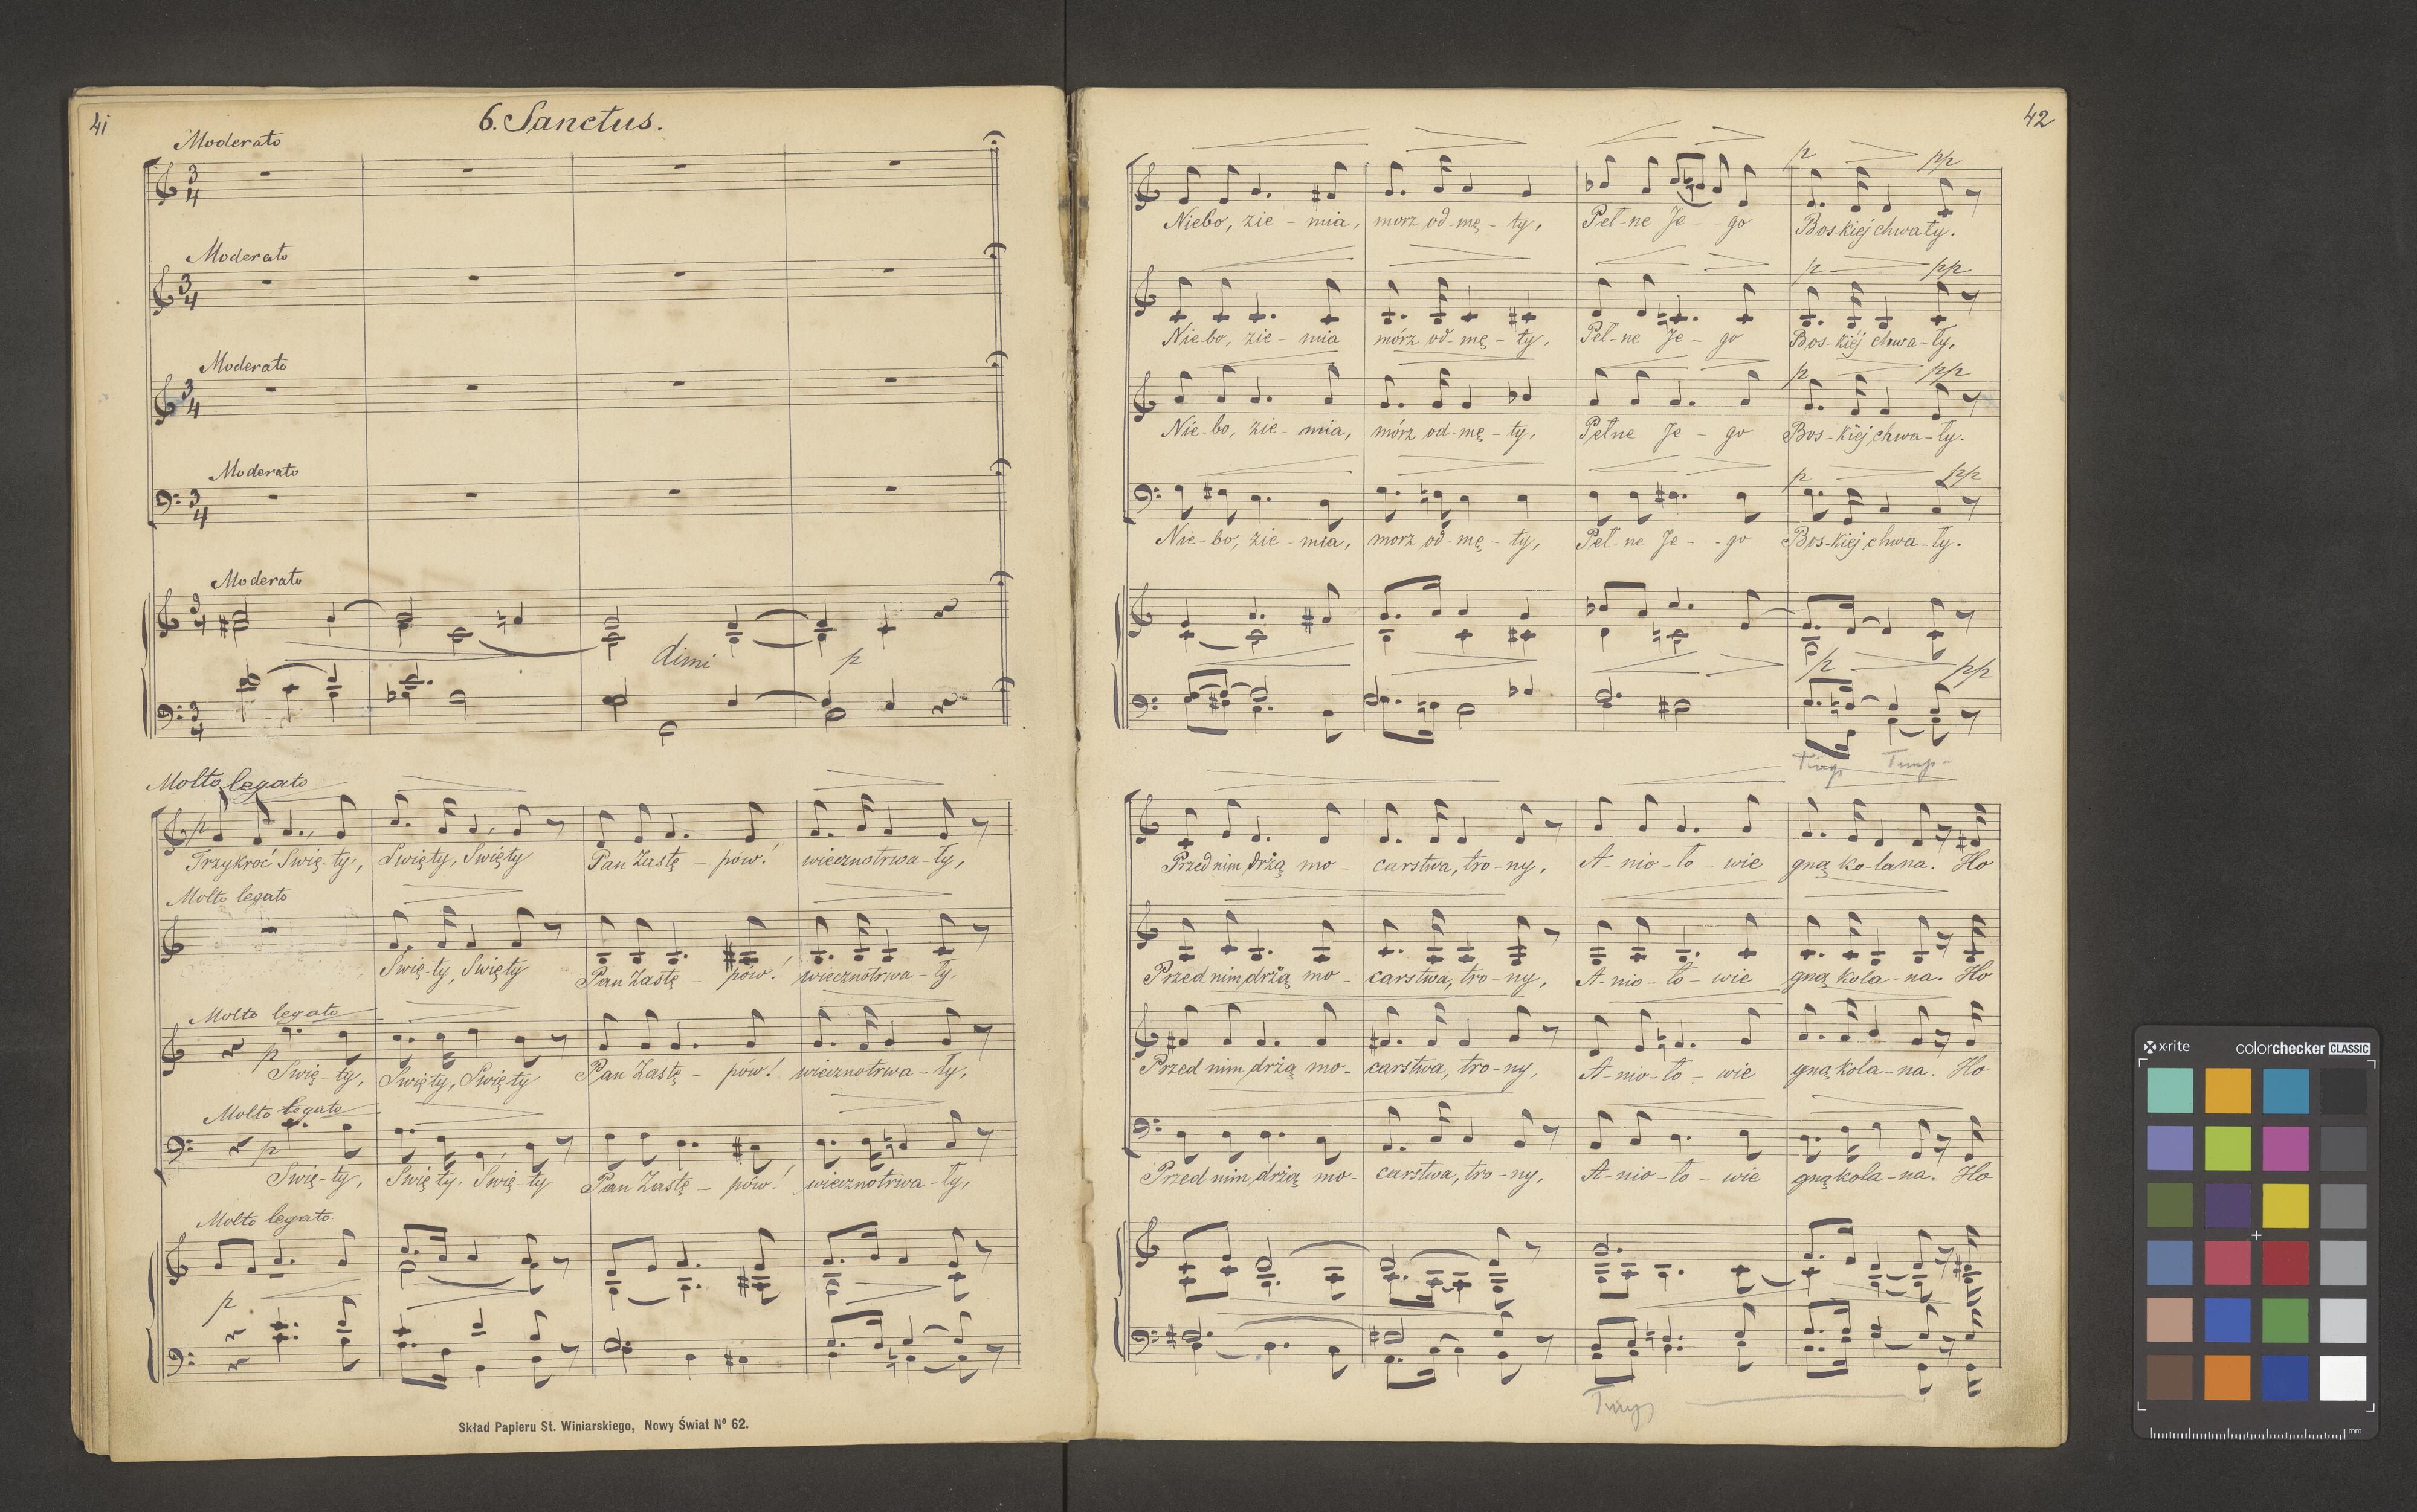 41
6. Sanctus.
Moderato
3 4
Moderato
3 4
Moderato
3 4
Moderato
3 4
Moderato
3 4
dimi p
3 4
Molto legato
p
Trzykroć Świę-ty, Święty, Święty Pan Zastę - pów! wiecznotrwa-ły,
Molto legato
Świę-ty, Święty Pan Zastę - pów! wiecznotrwa-ły.
Molto legato
p
Swię-ty, Święty, Święty Pan Zastę - pów! wiecznotrwa-ły,
Molto legato
p
Swię-ty, Swię ty. Swię-ty Pan Zastę - pów! wiecznotrwa-ły,
Molto legato.
p
Skład Papieru St. Winiarskiego, Nowy Świat Nº 62.
42
p pp
Niebo, zie - mia, morz od-mę - ty, Peł-ne Je - - go Boskiej chwały.
p pp
Nie-bo, zie - mia mórz od-mę - ty, Peł-ne Je - go Bos-kiéj chwa-ły,
p pp
Nie-bo, zie - mia, mórz od-mę - ty, Pełne Je - go Bos-kiej chwa-ły.
p pp
Nie-bo, zie - mia, morz od-mę - ty, Peł-ne Je - - go Bos-kiej chwa-ły.
p pp
Przed nim drżą mo - carstwa, tro-ny, A-nio-ło-wie gną ko-lana. Ho
Przed nim drżą mo - carstwa, tro-ny, A-nio-ło-wie gną kola-na. Ho
Przed nim drżą mo - carstwa, tro-ny, A-nio-ło-wie gną kola-na. Ho
Przed nim drżą mo - carstwa, tro-ny, A-nio-ło-wie gną kola-na. Ho
x-rite colorchecker CLASSIC
mm